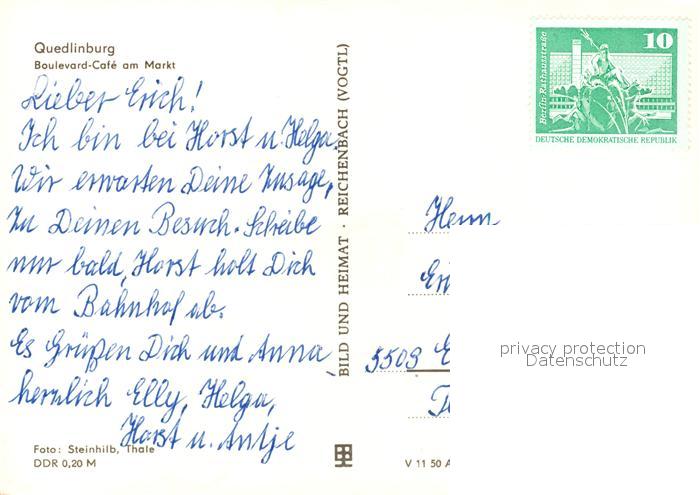 Quedlinburg
Boulevard-Café am Markt
Lieber Erich!
Ich bin bei Horst u. Helga.
Wir erwarten Deine Zusage,
zu Deinen Besuch. Schreibe
nur bald, Horst holt Dich
vom Bahnhof ab.
Es Grüßen Dich und Anna
herzlich Elly, Helga,
Horst u. Antje
Foto: Steinhilb, Thale
DDR 0,20 M
BILD UND HEIMAT · REICHENBACH (VOGTL)
10
Berlin-Rathausstraße
DEUTSCHE DEMOKRATISCHE REPUBLIK
Herrn
Eri
5503 E
privacy protection
Datenschutz
V 11 50 A